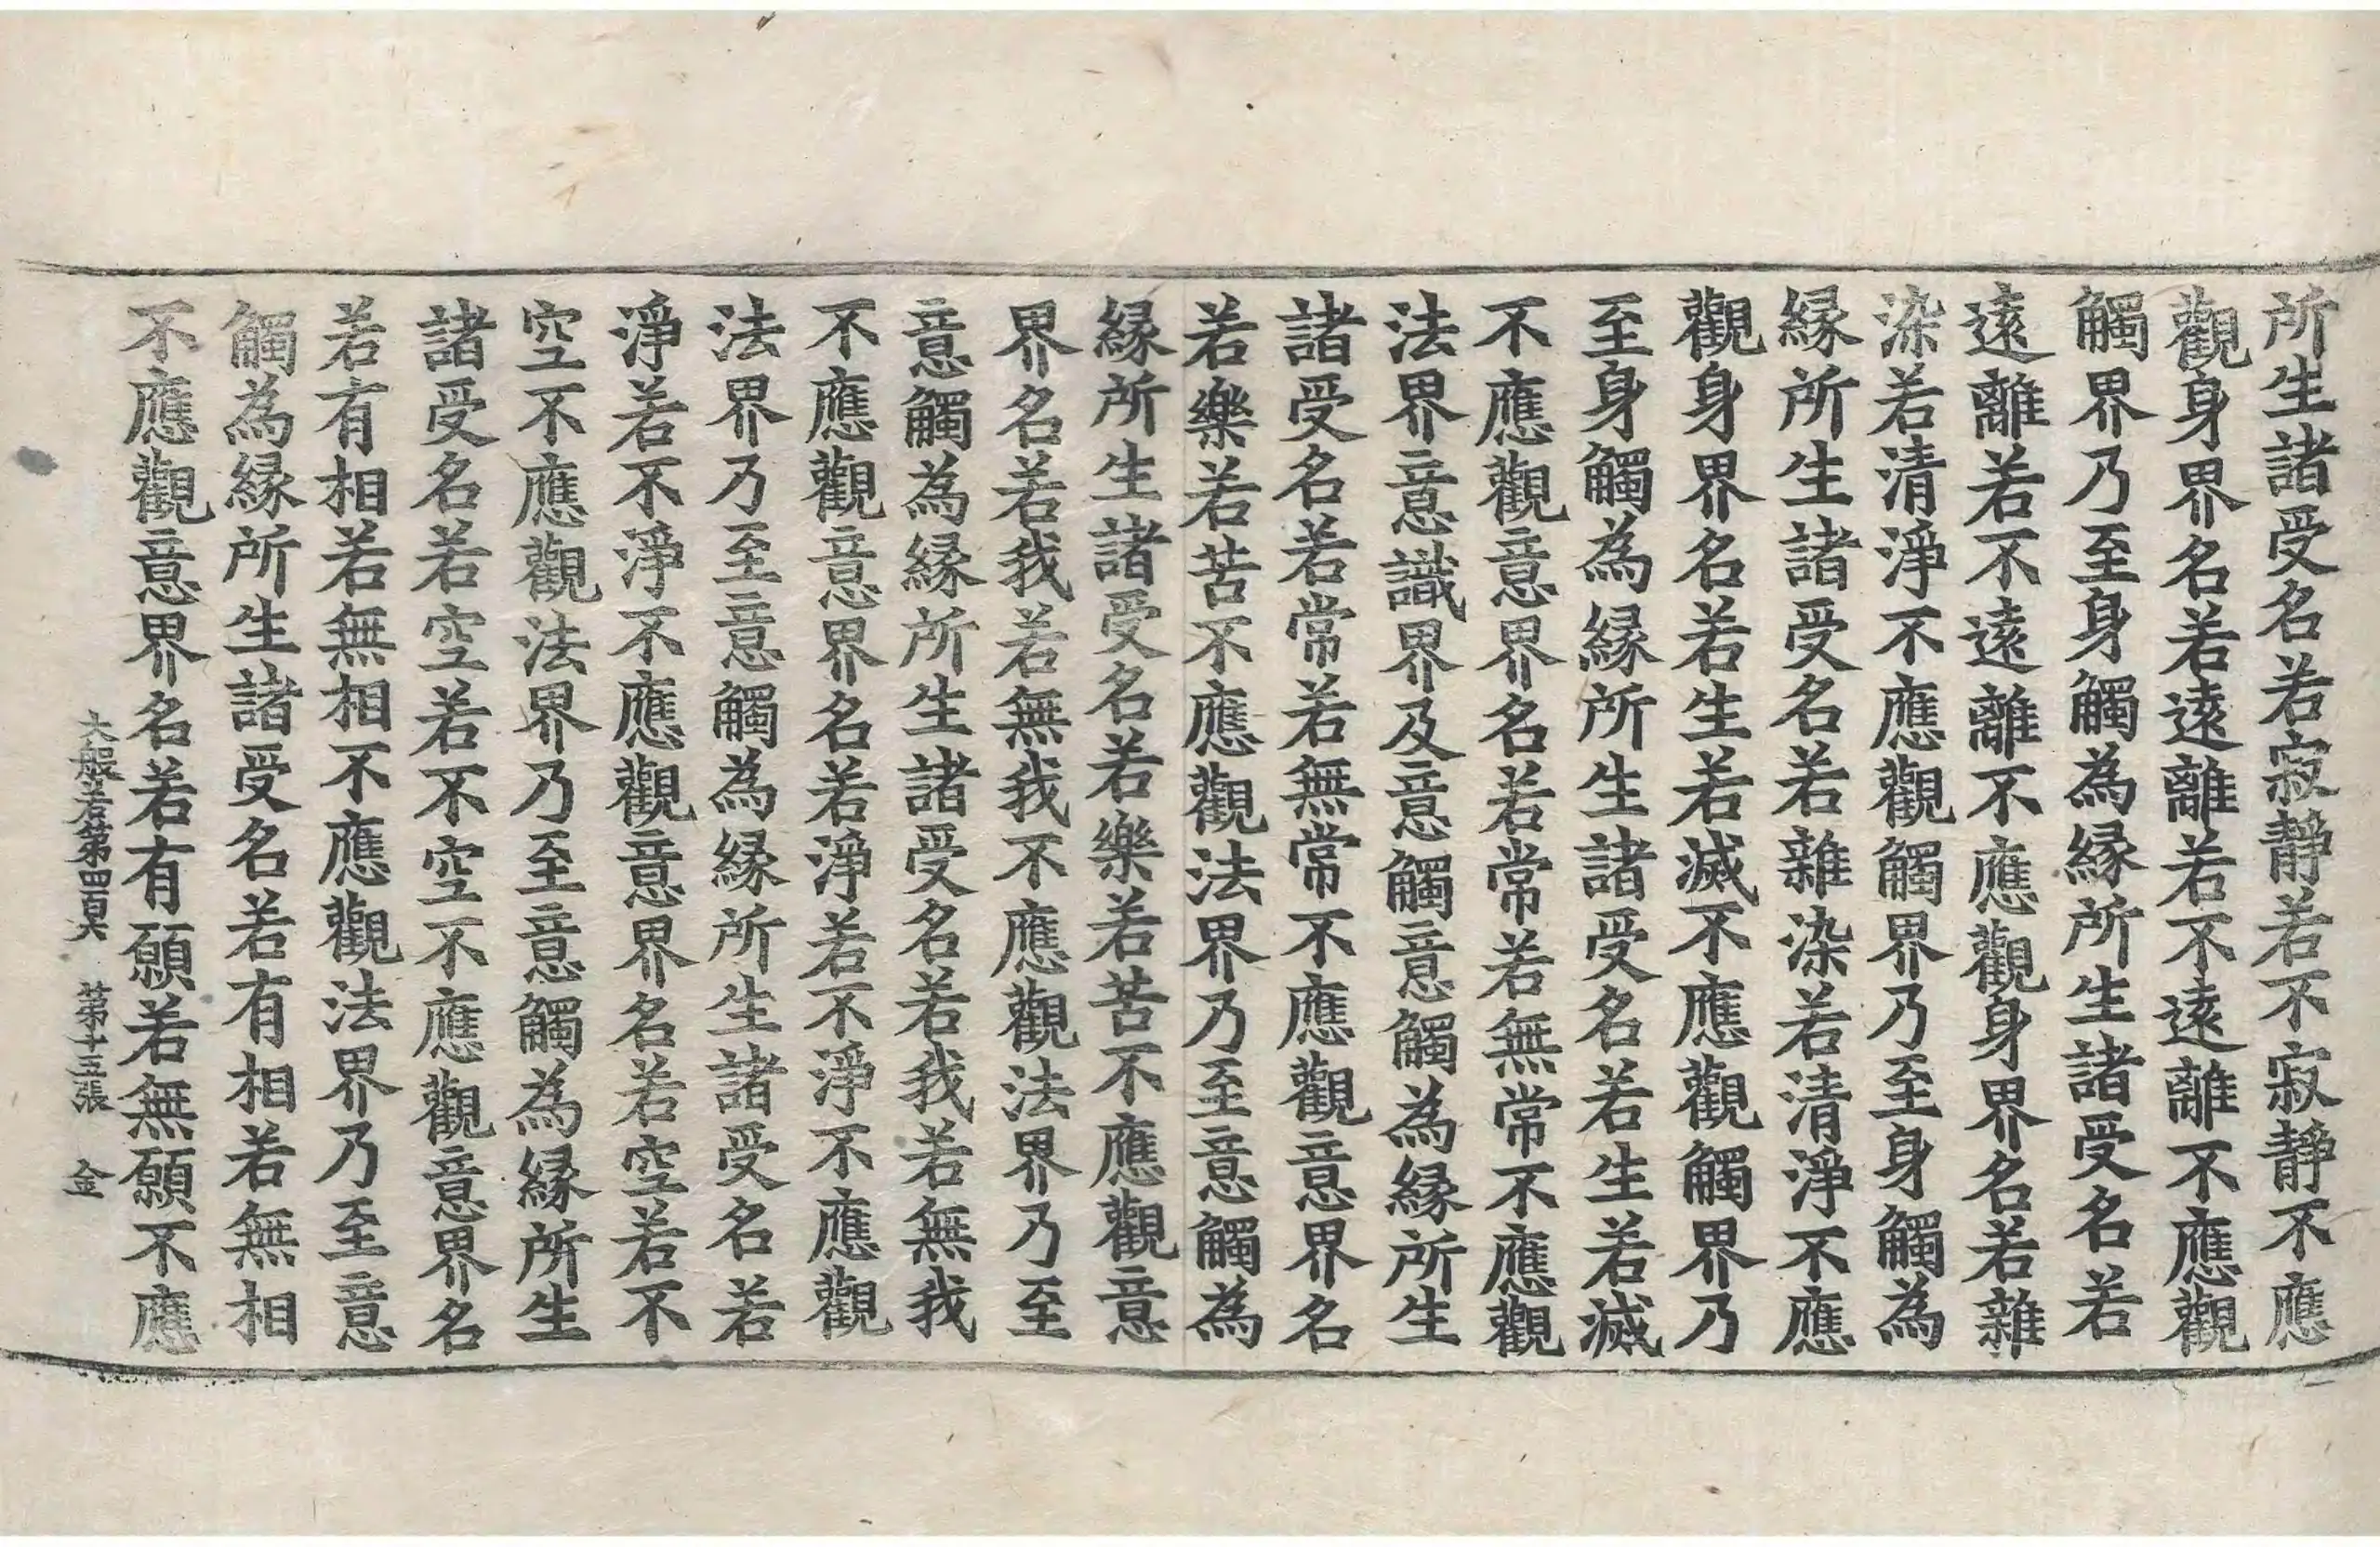 所生諸受名若寂靜若不寂靜不應
觀身界名若遠離若不遠離不應觀
觸界乃至身觸為縁所生諸受名若
遠離若不遠離不應觀身界名若雜
染若清淨不應觀觸界乃至身觸為
縁所生諸受名若雜染若清淨不應
觀身界名若生若滅不應觀觸界乃
至身觸為縁所生諸受名若生若滅
不應觀意界名若常若無常不應觀
法界意識界及意觸意觸為縁所生
諸受名若常若無常不應觀意界名
若樂若苦不應觀法界乃至意觸為
縁所生諸受名若樂若苦不應觀意
界名若我若無我不應觀法界乃至
意觸為縁所生諸受名若我若無我
不應觀意界名若淨若不淨不應觀
法界乃至意觸為縁所生諸受名若
淨若不淨不應觀意界名若空若不
空不應觀法界乃至意觸為縁所生
諸受名若空若不空不應觀意界名
若有相若無相不應觀法界乃至意
觸為縁所生諸受名若有相若無相
不應觀意界名若有願若無願不應
大般若第四百六 第十五張 金